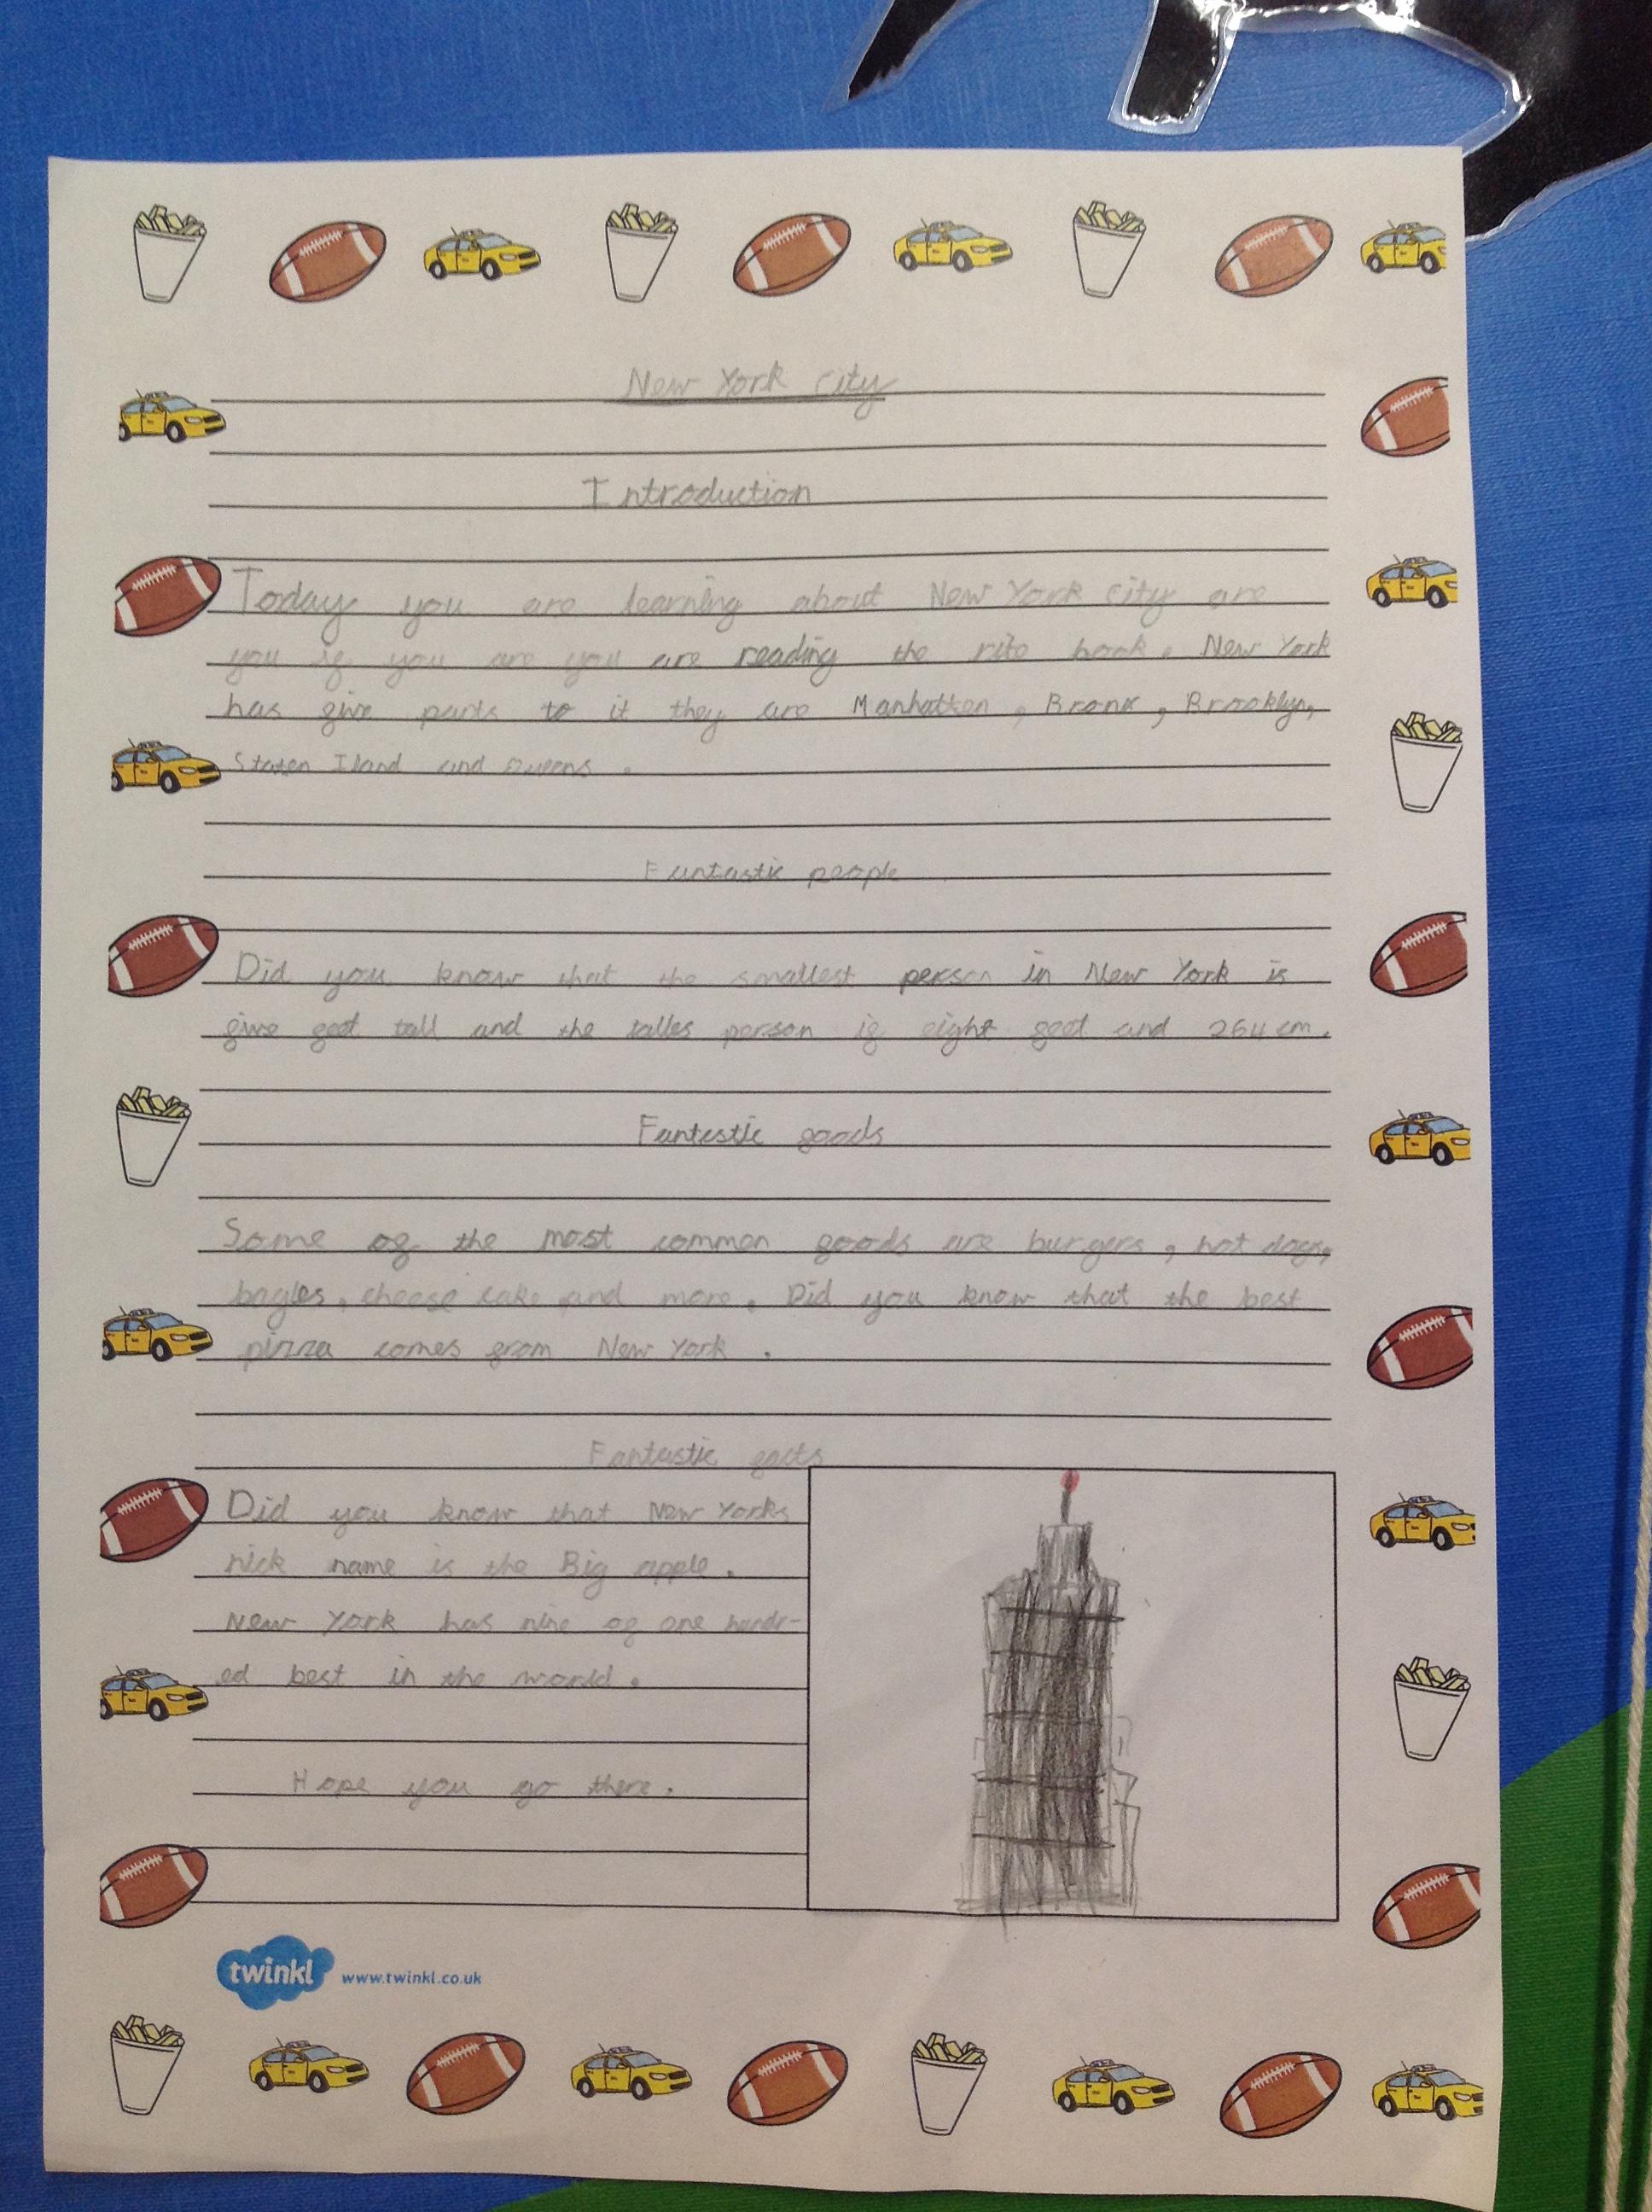 New York City
Introduction
Today you are learning about New York City are
you if you are you are reading the rite book. New York
has five parts to it they are Manhatten, Bronx, Brooklyn,
Staten Iland and Queens.
Fantastic people
Did you know that the smallest person in New York is
five feet tall and the talles person is eight feet and 264 cm.
Fantestic foods
Some of the most common foods are burgers, hot dogs,
bagles, cheese cake and more. Did you know that the best
pizza comes from New York.
Fantastic facts
Did you know that New Yorks
nick name is the Big apple.
New York has nine of one hundr-
ed best in the world.
Hope you go there.
twinkl www.twinkl.co.uk